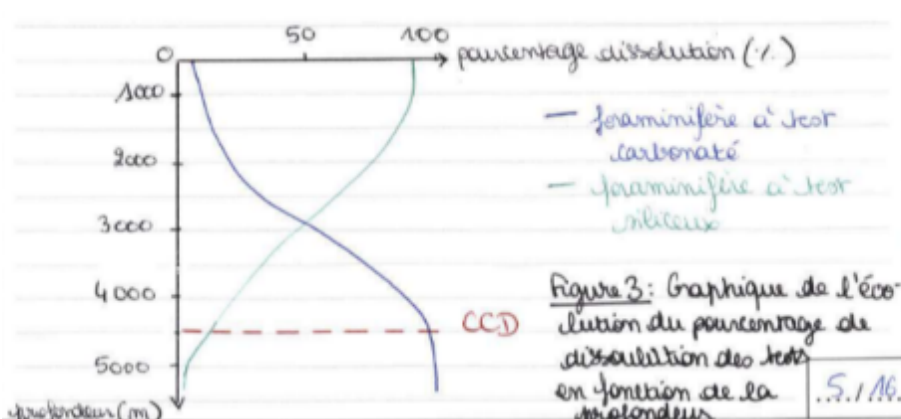 0 50 100
pourcentage dissolution (%)
1000
2000
3000
4000
5000
profondeur (m)
— foraminifère à test
carbonaté
— foraminifère à test
siliceux
CCD
Figure 3: Graphique de l'évo-
lution du pourcentage de
dissoulution des tests
en fonction de la
profondeur
.5./.16.